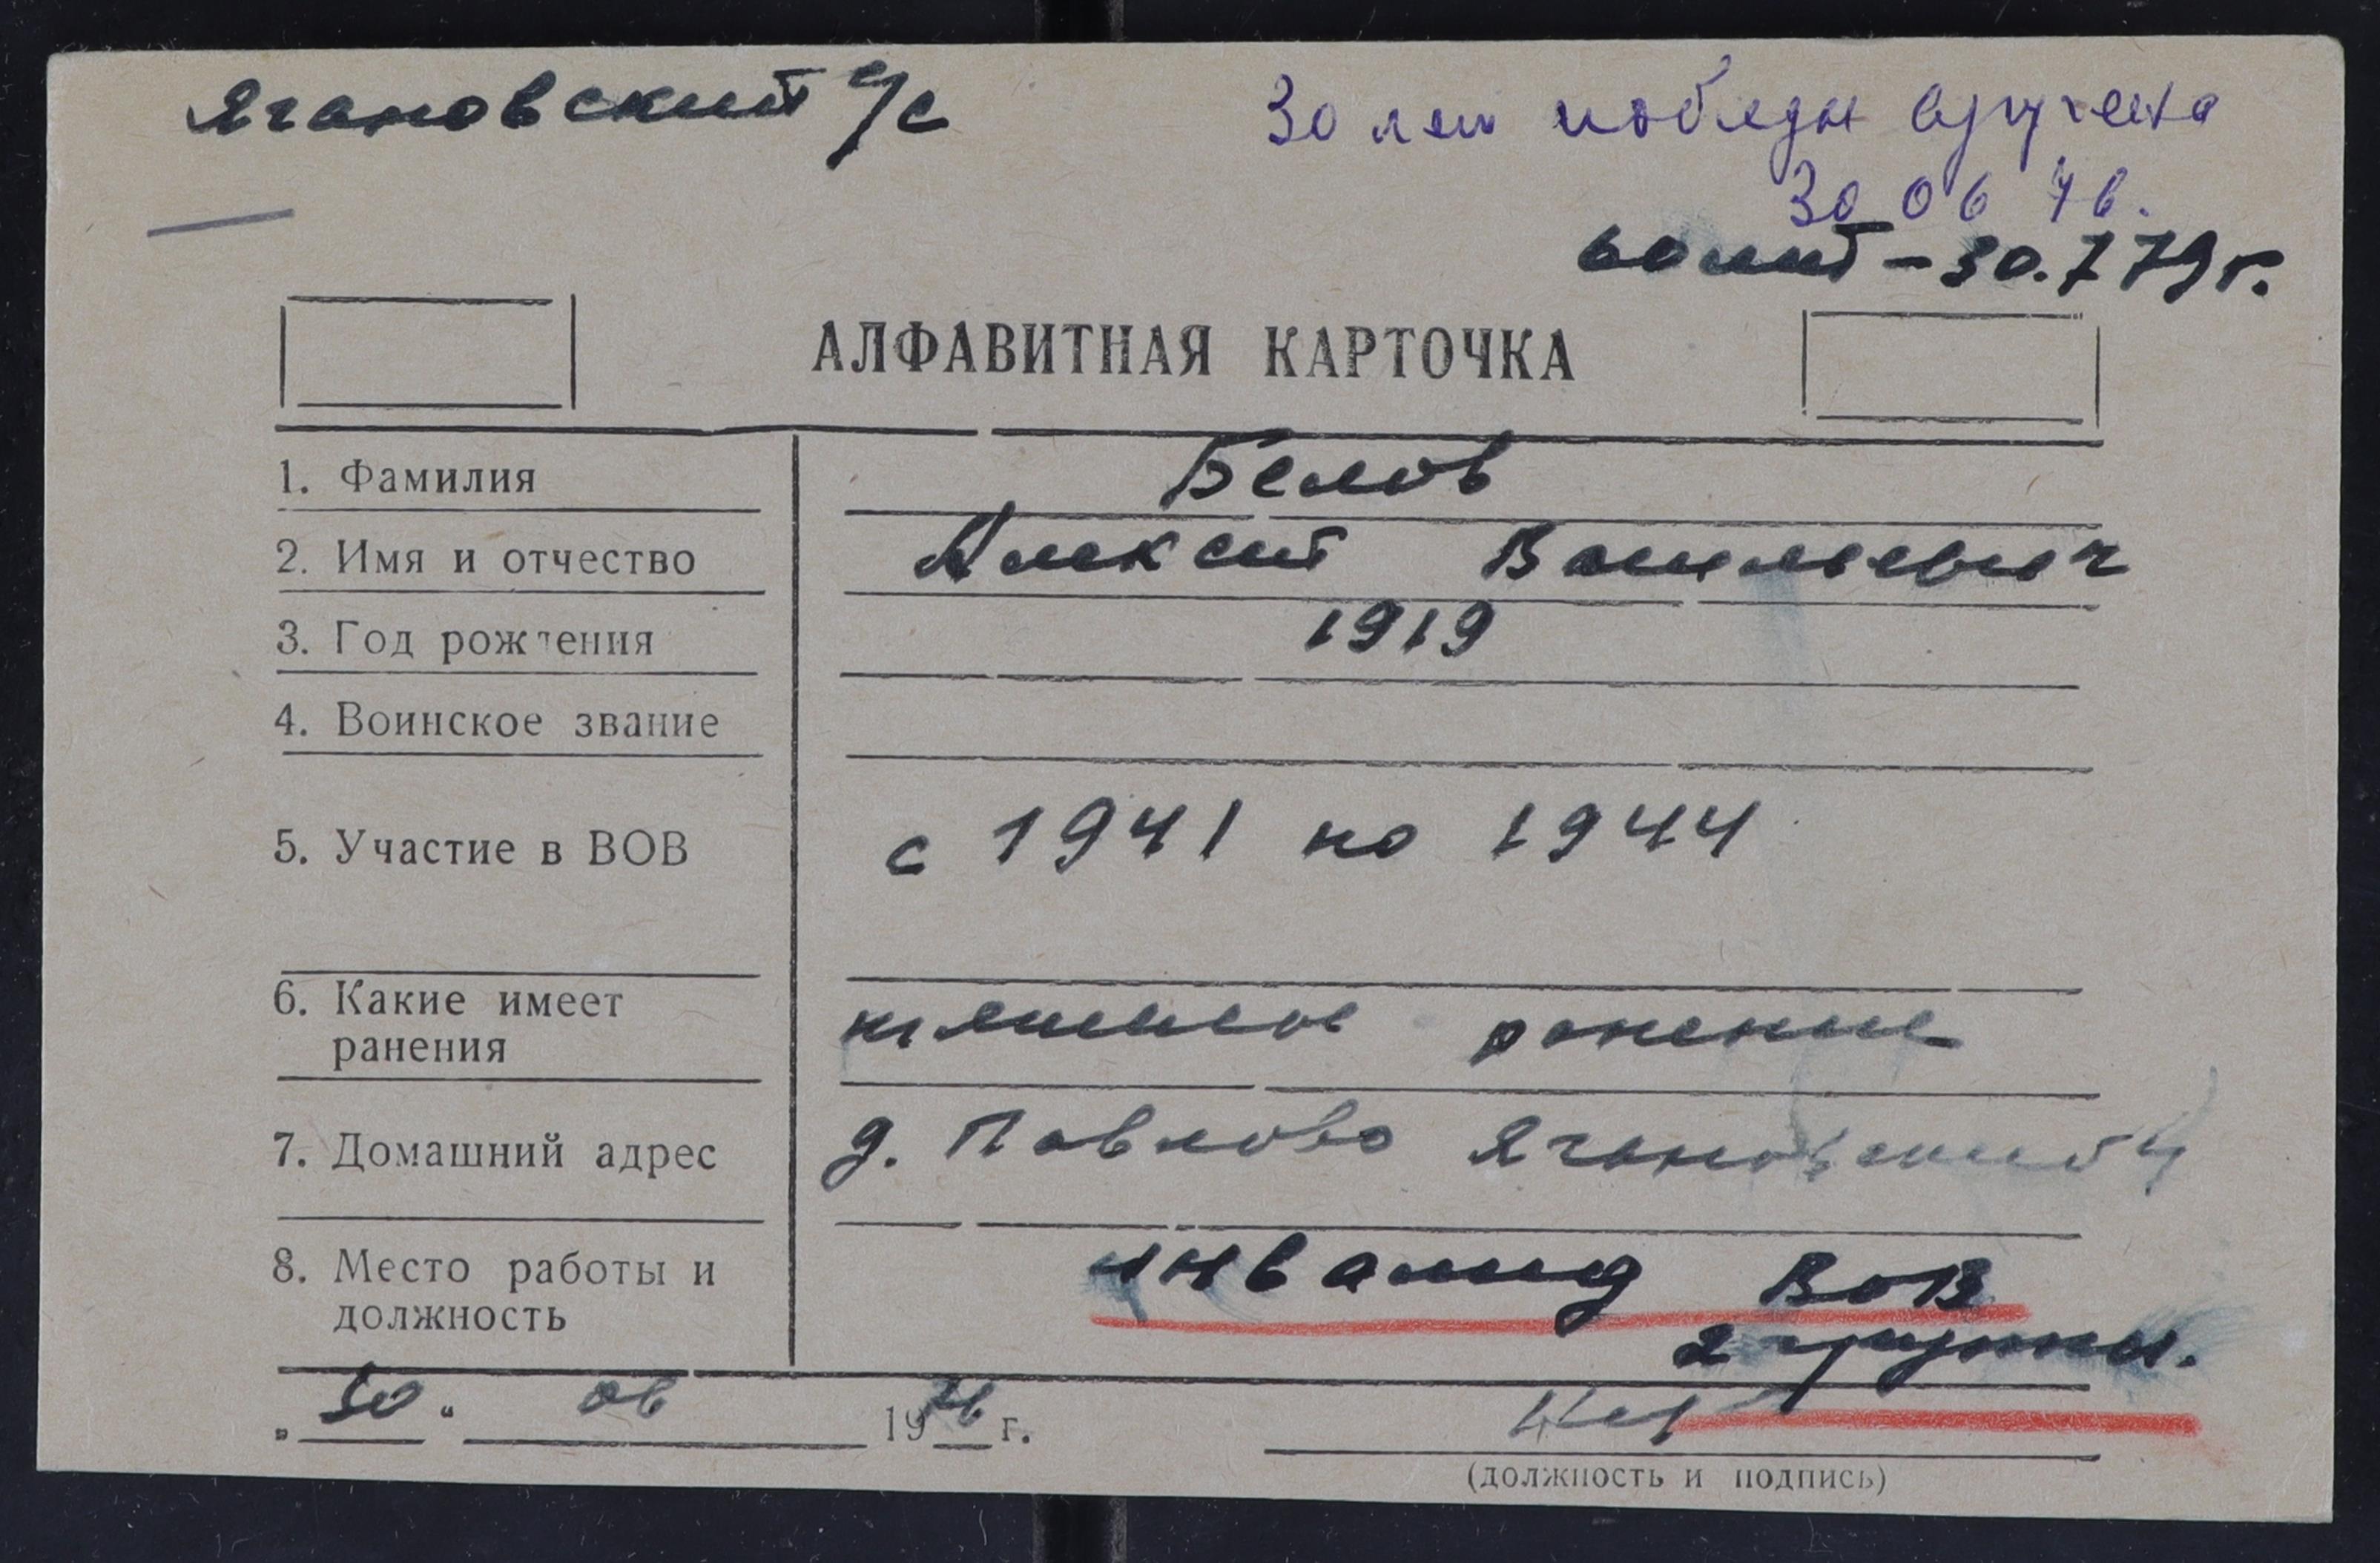 Ягановский с/с
30 лет победы вручена
30 06 76.
60 лет - 30.7 79 г.
АЛФАВИТНАЯ КАРТОЧКА
1. Фамилия Белов
2. Имя и отчество Алексей Васильевич
3. Год рождения 1919
4. Воинское звание
5. Участие в ВОВ с 1941 по 1944
6. Какие имеет
ранения тяжелое ранение
7. Домашний адрес д. Павлово Ягановский
8. Место работы и инвалид ВОВ
должность 2 группы.
„30“ 06 1976 г.
(должность и подпись)